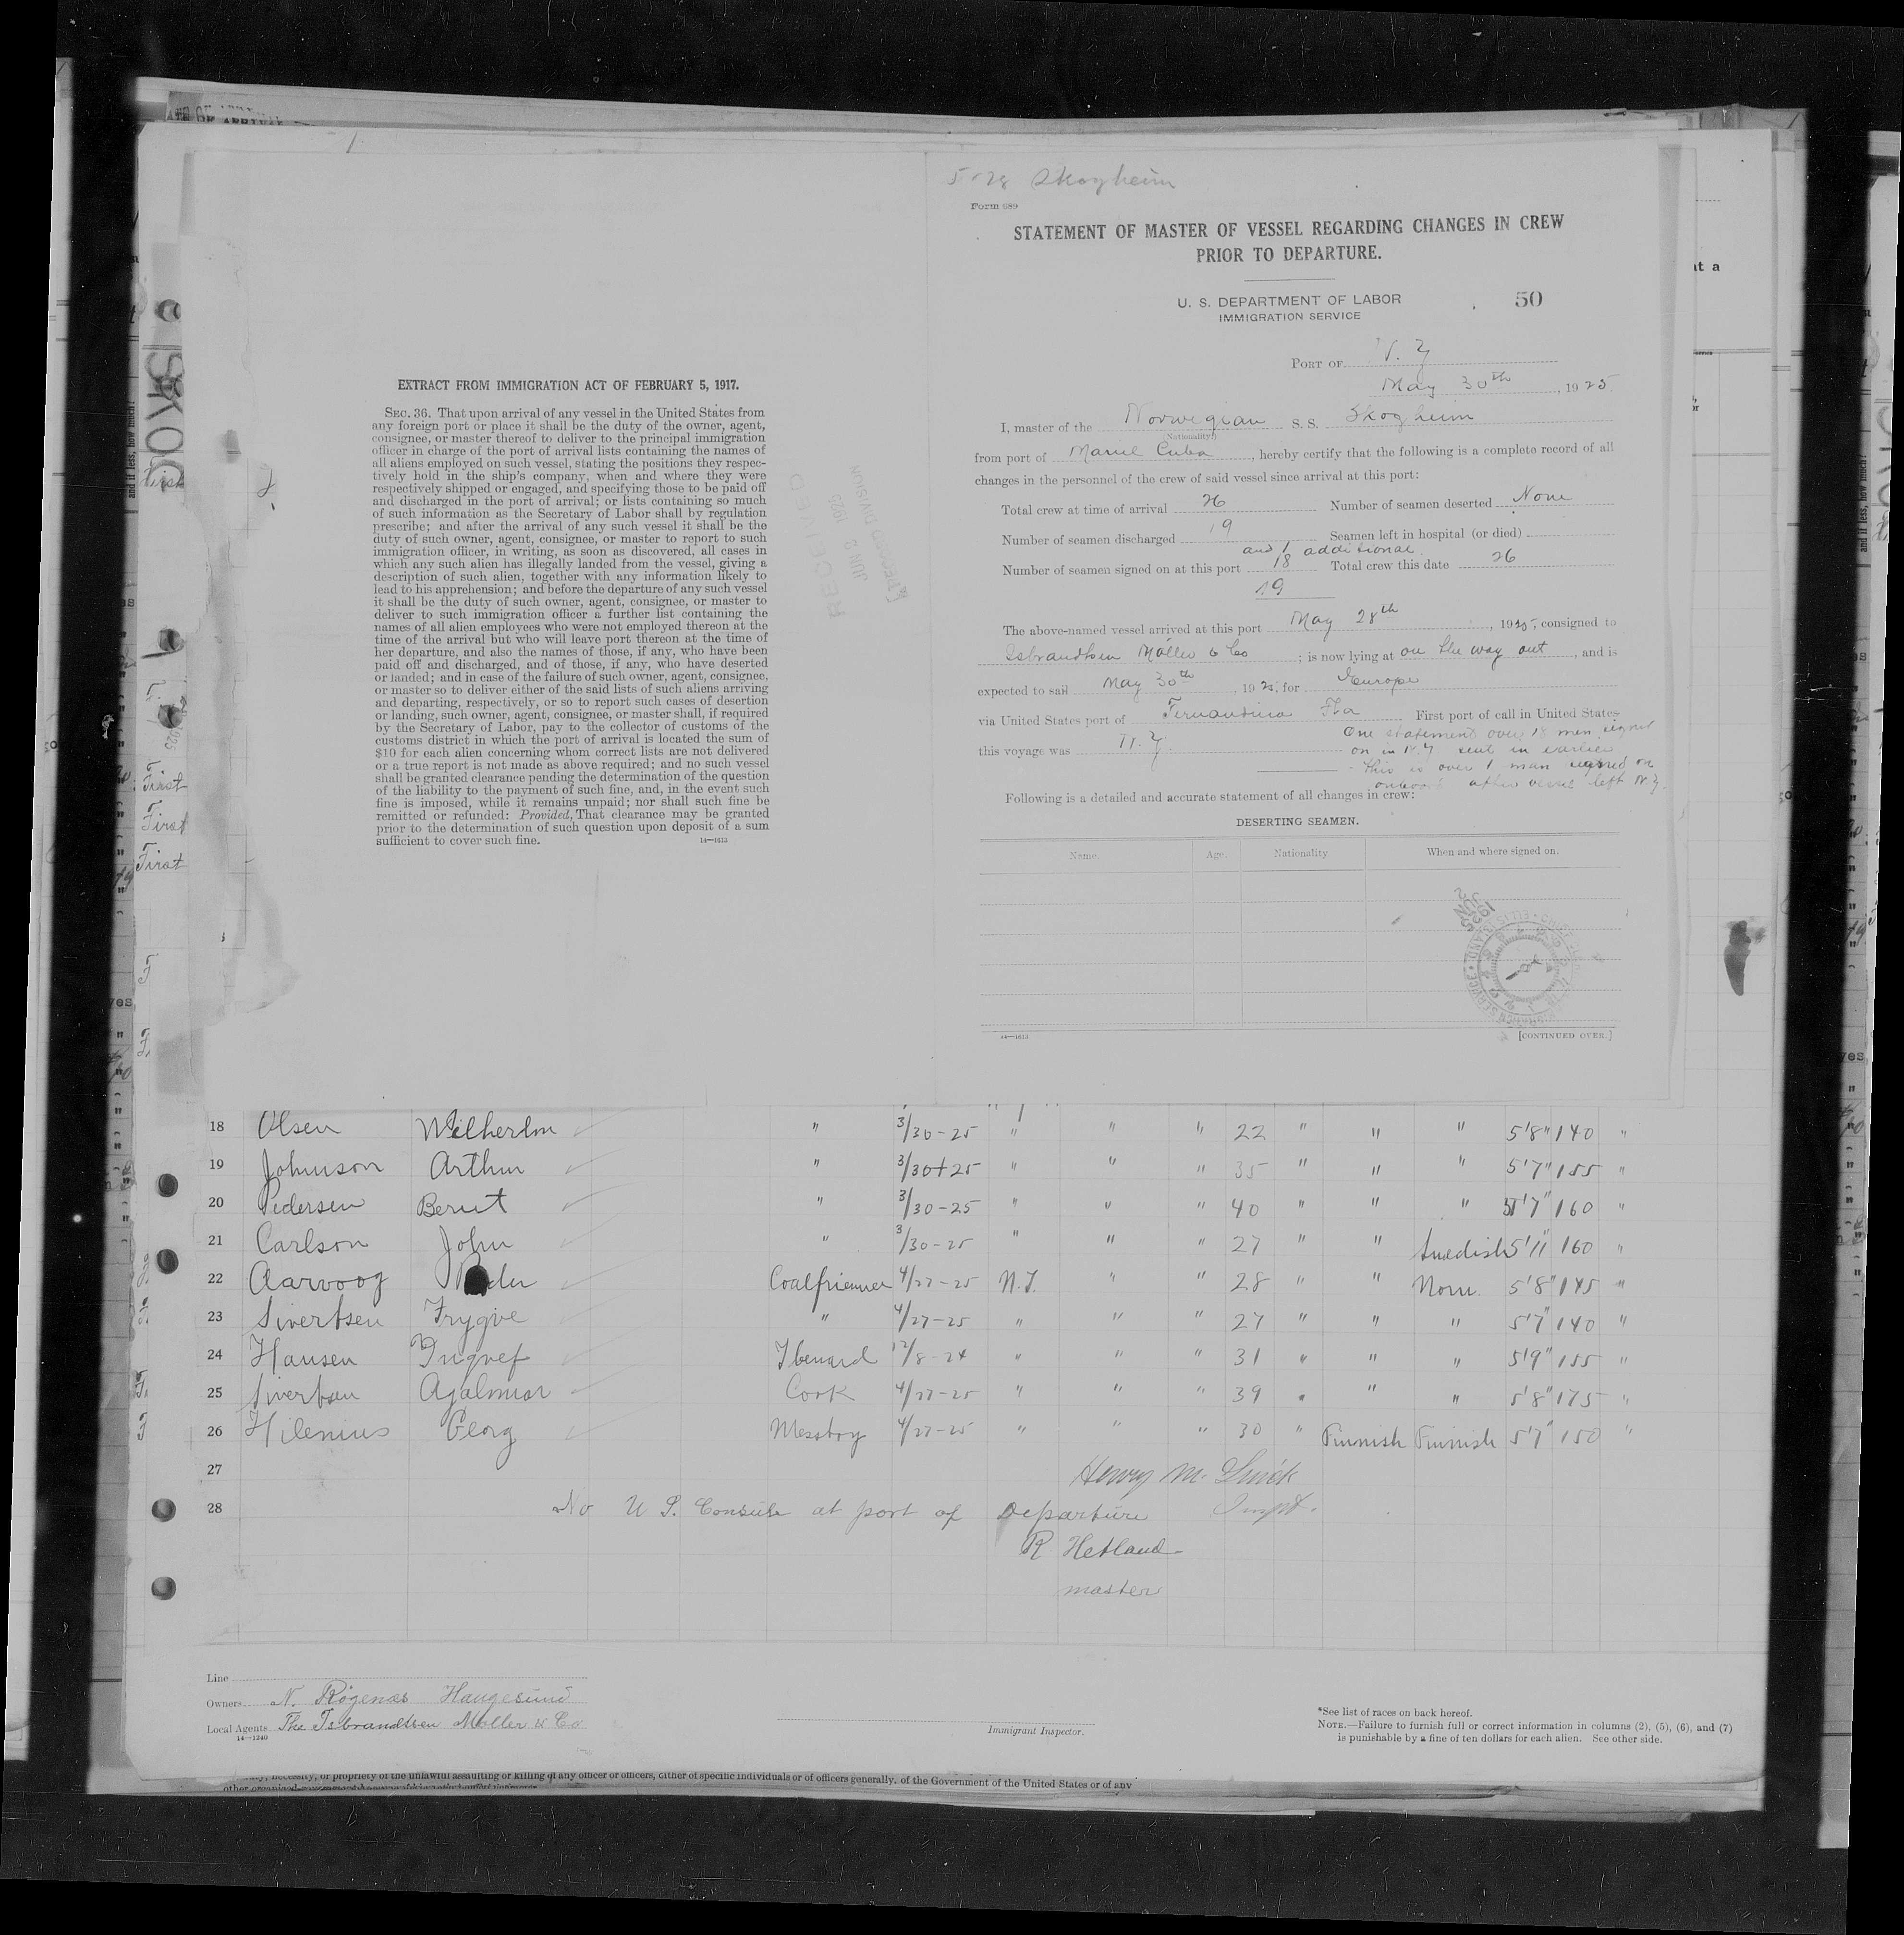 EXTRACT FROM IMMIGRATION ACT OF FEBRUARY 5, 1917.
SEC. 36. That upon arrival of any vessel in the United States from
any foreign port or place it shall be the duty of the owner, agent,
consignee, or master thereof to deliver to the principal immigration
officer in charge of the port of arrival lists containing the names of
all aliens employed on such vessel, stating the positions they respec-
tively hold in the ship's company, when and where they were
respectively shipped or engaged, and specifying those to be paid off
and discharged in the port of arrival; or lists containing so much
of such information as the Secretary of Labor shall by regulation
prescribe; and after the arrival of any such vessel it shall be the
duty of such owner, agent, consignee, or master to report to such
immigration officer, in writing, as soon as discovered, all cases in
which any such alien has illegally landed from the vessel, giving a
description of such alien, together with any information likely to
lead to his apprehension; and before the departure of any such vessel
it shall be the duty of such owner, agent, consignee, or master to
deliver to such immigration officer a further list containing the
names of all alien employees who were not employed thereon at the
time of the arrival but who will leave port thereon at the time of
her departure, and also the names of those, if any, who have been
paid off and discharged, and of those, if any, who have deserted
or landed; and in case of the failure of such owner, agent, consignee,
or master so to deliver either of the said lists of such aliens arriving
and departing, respectively, or so to report such cases of desertion
or landing, such owner, agent, consignee, or master shall, if required
by the Secretary of Labor, pay to the collector of customs of the
customs district in which the port of arrival is located the sum of
$10 for each alien concerning whom correct lists are not delivered
or a true report is not made as above required; and no such vessel
shall be granted clearance pending the determination of the question
of the liability to the payment of such fine, and, in the event such
fine is imposed, while it remains unpaid; nor shall such fine be
remitted or refunded: Provided, That clearance may be granted
prior to the determination of such question upon deposit of a sum
sufficient to cover such fine. 14—1613
RECEIVED
JUN 2 1925
RECORD DIVISION
5-28 Skogheim
Form 689
STATEMENT OF MASTER OF VESSEL REGARDING CHANGES IN CREW
PRIOR TO DEPARTURE.
U. S. DEPARTMENT OF LABOR
IMMIGRATION SERVICE
50
PORT OF N. Y
May 30th, 1925
I, master of the Norwegian S. S. Skogheim
(Nationality)
from port of Mariel Cuba, hereby certify that the following is a complete record of all
changes in the personnel of the crew of said vessel since arrival at this port:
Total crew at time of arrival 26 Number of seamen deserted None
Number of seamen discharged 19 Seamen left in hospital (or died)
and 1 additional
Number of seamen signed on at this port 18 Total crew this date 26
19
The above-named vessel arrived at this port May 28th, 1925, consigned to
Isbrandtsen Möller & Co; is now lying at on the way out, and is
expected to sail May 30th, 1925, for Europe
via United States port of Fernandina Fla First port of call in United States
this voyage was N. Y.
One statement over 18 men signed
on in N.Y sent in earlier
- This is over 1 man signed on
onboard after vessel left N.Y.
Following is a detailed and accurate statement of all changes in crew:
DESERTING SEAMEN.
Name. Age. Nationality When and where signed on.
JUN 2
1925
14—1613 [CONTINUED OVER.]
18 Olsen Wilherlm " 3/30-25 " " " 22 " " " 5'8" 140 "
19 Johnson Arthur " 3/30+25 " " " 35 " " " 5'7" 155 "
20 Pedersen Bernt " 3/30-25 " " " 40 " " " 5'7" 160 "
21 Carlson John " 3/30-25 " " " 27 " " Swedish 5'11" 160 "
22 Aarvoog Coalfriemer 4/27-25 N.Y. " " 28 " " Norw. 5'8" 145 "
23 Sivertsen Trygve " 4/27-25 " " " 27 " " " 5'7" 140 "
24 Hansen Yngvef 12/8-24 " " " 31 " " " 5'9" 155 "
25 Sivertsen Agalmar Cook 4/27-25 " " " 39 " " " 5'8" 175 "
26 Hilenius Georg Messboy 4/27-25 " " " 30 " Finnish Finnish 5'7" 150 "
27 Henry M.
28 No U S. Consule at port of Departure
R Hetland
master
Line
Owners N. Røgenæs Haugesund
Local Agents The Isbrandtsen Moller & Co
14—1240
Immigrant Inspector.
*See list of races on back hereof.
NOTE.—Failure to furnish full or correct information in columns (2), (5), (6), and (7)
is punishable by a fine of ten dollars for each alien. See other side.
necessity, or propriety of the unlawful assaulting or killing of any officer or officers, either of specific individuals or of officers generally, of the Government of the United States or of any